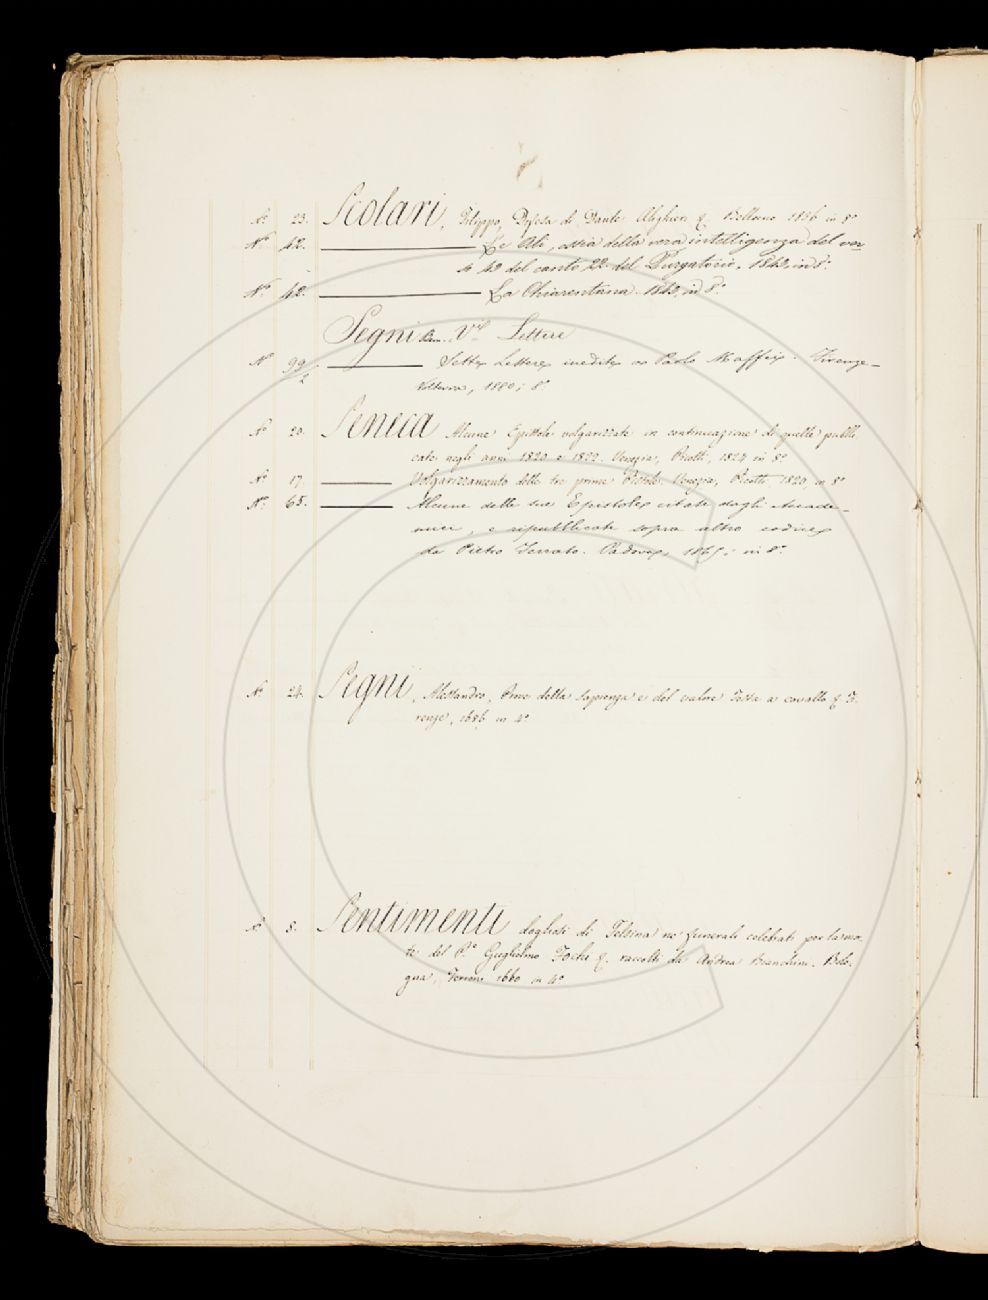 Nº 23. Scolari, Filippo, Difesa di Dante Alighieri &. Belluno 1836 in 8º
Nº 42. Le Ali, ossia della vera intelligenza del ver-
so 49 del canto 22 del Purgatorio. 1842, in 8º
Nº 42. La Chiarentana. 1843, in 8º
Segni Lettere
Nº 99/2 Sette Lettere inedite a Paolo Maffei. Firenze-
Volterra, 1880, 8º
Nº 20. Seneca Alcune Epistole volgarizzate in continuazione di quelle pubbli
cate negli anni 1820 e 1822. Venezia, Picotti, 1824 in 8º
Nº 17. Volgarizzamento delle tre prime Pistole. Venezia, Picotti, 1820, in 8º
Nº 65. Alcune delle sue Epistole citate dagli Accade-
mici, e ripubblicate sopra altro codice
da Pietro Ferrato. Padova, in 8º
Nº 24. Segni, Alessandro, della Sapienza e del valore Festa a cavallo & Fi-
renze, 1686 in 4º
Nº 8. Sentimenti dogliosi di Felsina ne' funerali celebrati per la mor-
te del Pe. Guglielmo & raccolti da Andrea Bianchini. Bolo-
gna, Ferroni 1660 in 4º